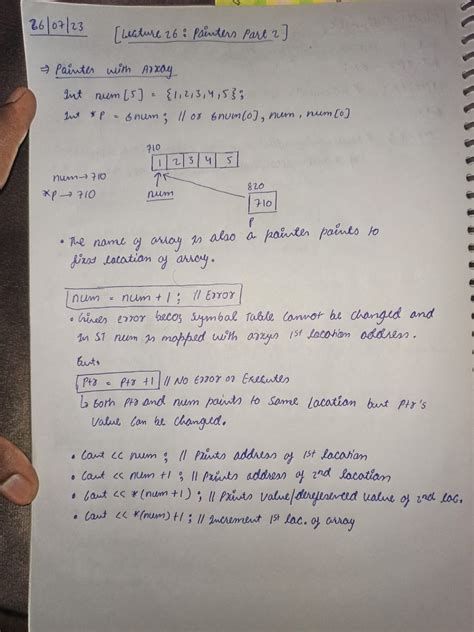 26/07/23
[Lecture 26: Pointers Part 2]
⇒ Pointer with Array
Int num[5] = {1,2,3,4,5};
Int *p = &num; // or &num[0], num, num[0]
710
1 2 3 4 5
num→710
*p→710
num
820
710
p
• The name of array is also a pointer points to
first location of array.
num = num+1; // Error
• Gives error becoz symbol Table cannot be changed and
In ST num is mapped with arrays 1st location address.
But,
ptr = ptr+1 // No Error or Executes
↳ Both ptr and num points to same location but ptr's
value can be changed.
• Cout << num; // Prints address of 1st location
• Cout << num+1; // Prints address of 2nd location
• Cout << *(num+1); // Prints value/dereferenced value of 2nd loc.
• Cout << *(num)+1; // Increment 1st loc. of array